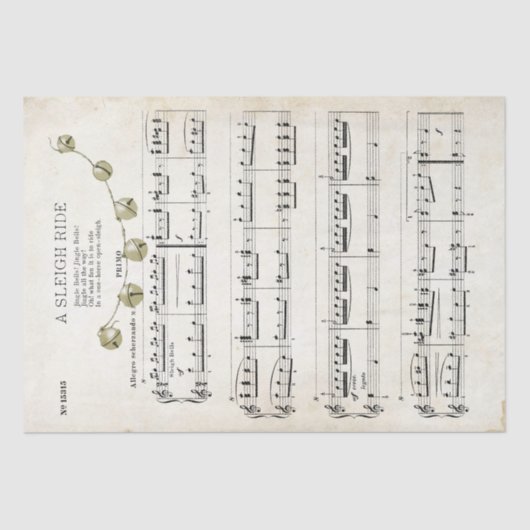 A SLEIGH RIDE
Jingle Bells! Jingle Bells!
Jingle all the way!
Oh! what fun it is to ride
In a one-horse open-sleigh
No 15315
PRIMO
Allegro scherzando
Sleigh Bells
cresc.
legato